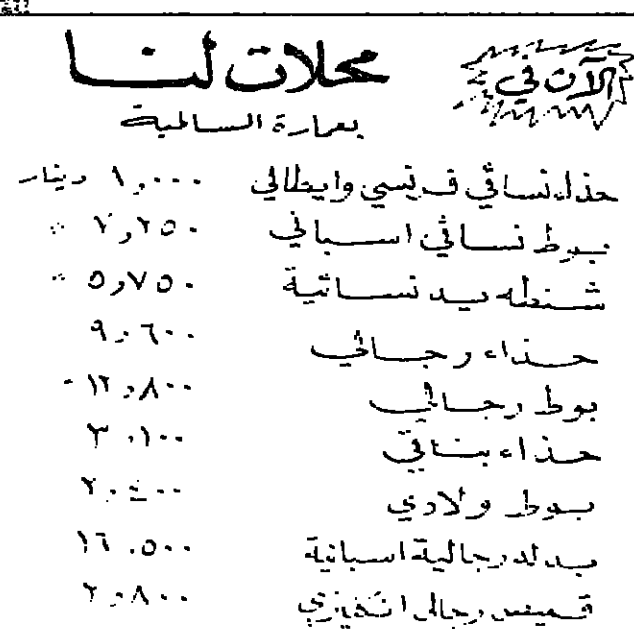 الآن في
محلات لنا
بعمارة السالمية
حذاء نسائي فرنسي وايطالي ١,٠٠٠ دينار
بوط نسائي اسباني ٧,٢٥٠ "
شنطه يد نسائية ٥,٧٥٠ "
حذاء رجالي ٩,٦٠٠
بوط رجالي ١٢,٨٠٠
حذاء بناتي ٣,١٠٠
بوط ولادي
بدله رجالية اسبانية ١٦,٥٠٠
قميص رجالي انكليزي ٢,٨٠٠